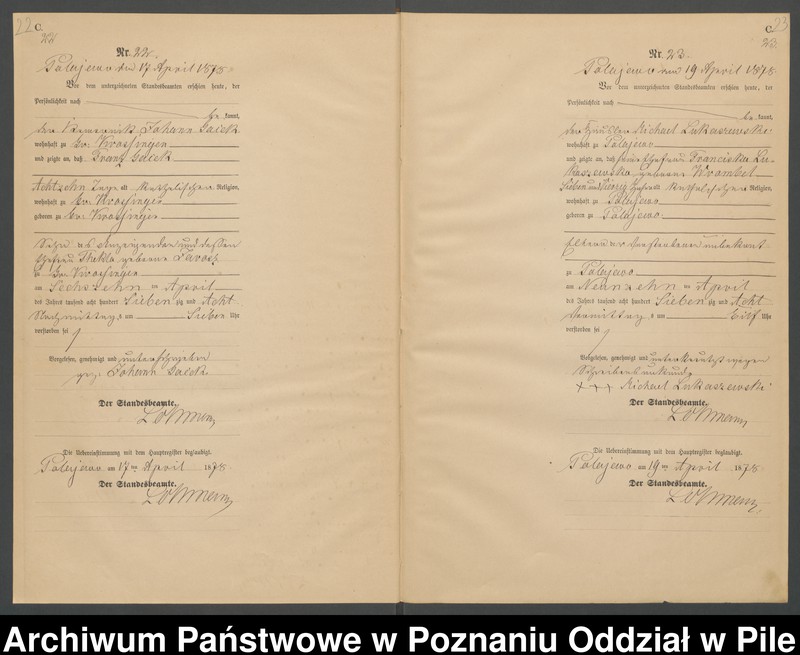 22
C.
22
Nr. 22.
Polajewo den 17 April 1878.
Vor dem unterzeichneten Standesbeamten erschien heute, der
Persönlichkeit nach
be kannt,
der Johann
wohnhaft zu Gr. Krossingen
und zeigte an, daß Franz
Achtzehn Tage alt katholischer Religion,
wohnhaft zu Gr. Krossingen
geboren zu Gr. Krossingen
Sohn des Anzeigenden und dessen
Ehefrau Thekla geborene
zu Gr. Krossingen
am Sechszehn ten April
des Jahres tausend acht hundert Sieben zig und Acht
Nachmittags um Sieben Uhr
verstorben sei
Vorgelesen, genehmigt und unterschrieben
gez. Johann
Der Standesbeamte.
Die Uebereinstimmung mit dem Hauptregister beglaubigt.
Polajewo am 17ten April 1878.
Der Standesbeamte.
23
C.
23.
Nr. 23.
Polajewo am 19 April 1878.
Vor dem unterzeichneten Standesbeamten erschien heute, der
Persönlichkeit nach
be kannt,
der Häusler Michael Lukaszewski
wohnhaft zu Polajewo
und zeigte an, daß seine Ehefrau Franciska Lu-
kaszewska geborene Wrombel
Sieben und Vierzig Jahre alt katholischer Religion,
wohnhaft zu Polajewo
geboren zu Polajewo
Eltern der Verstorbenen unbekannt
zu Polajewo
am Neunzehn ten April
des Jahres tausend acht hundert Sieben zig und Acht
Vormittags um Eilf Uhr
verstorben sei
Vorgelesen, genehmigt und unterkreuzt wegen
Schreibensunkunde
+++ Michael Lukaszewski
Der Standesbeamte.
Die Uebereinstimmung mit dem Hauptregister beglaubigt.
Polajewo am 19ten April 1878.
Der Standesbeamte.
Archiwum Państwowe w Poznaniu Oddział w Pile